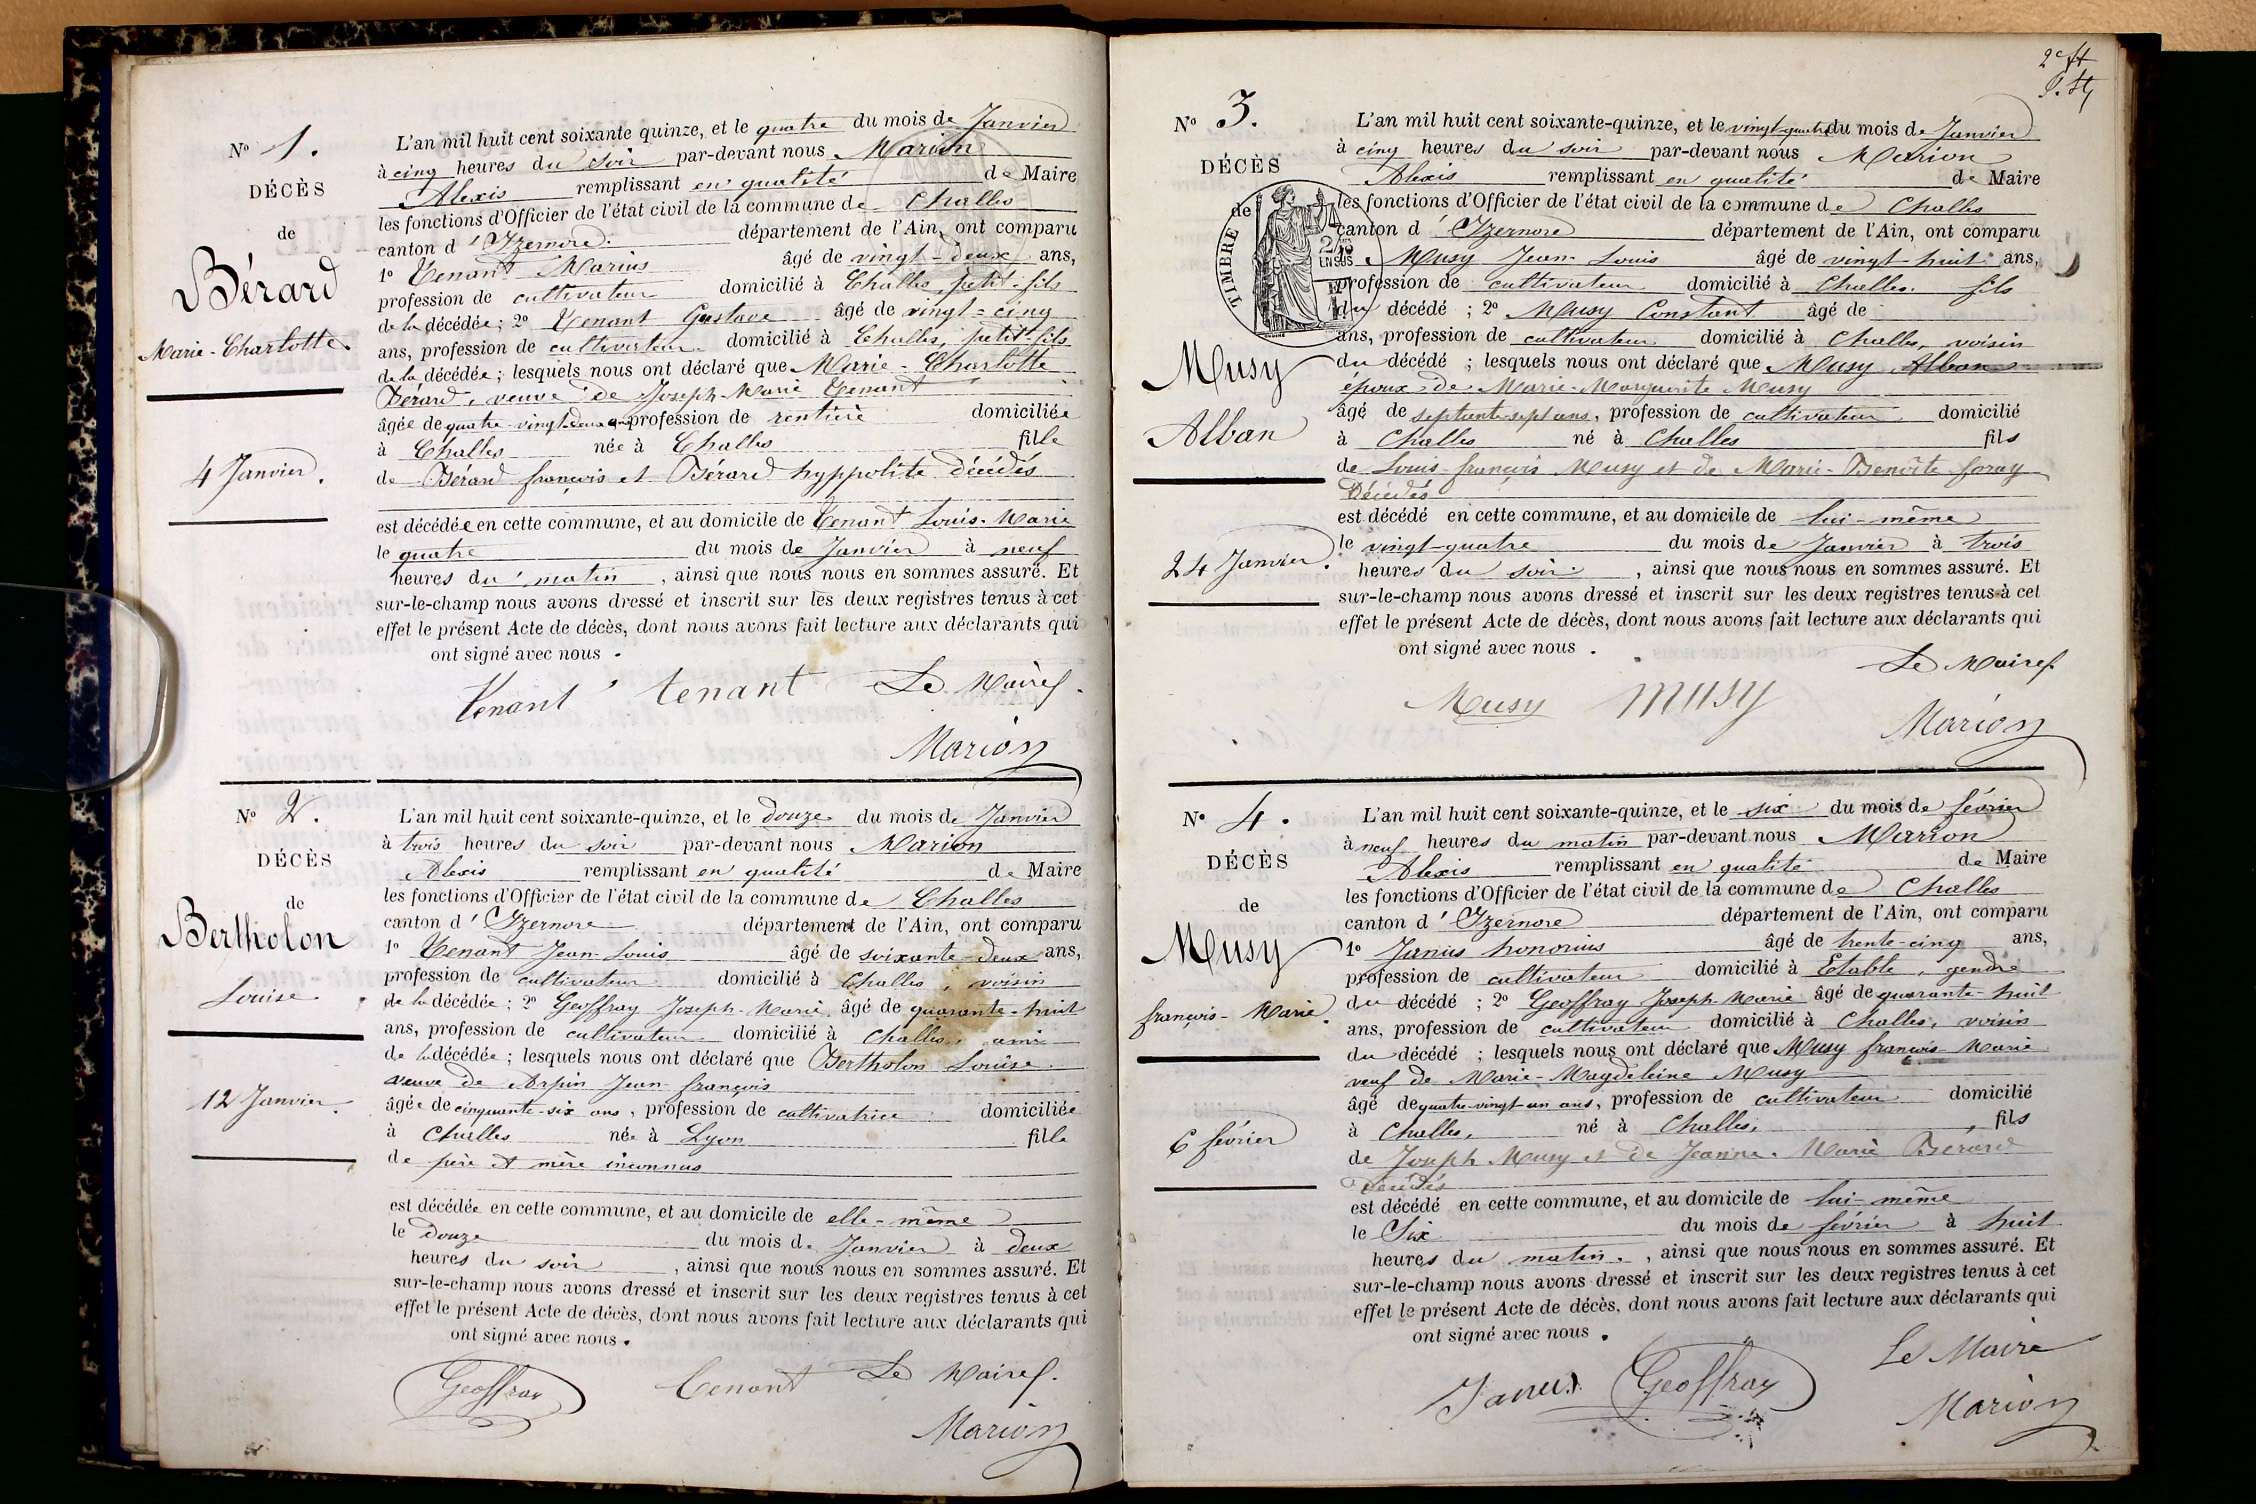 N° 1.
DÉCÈS
de
Bérard
Marie-Charlotte.
4 Janvier.
L'an mil huit cent soixante quinze, et le quatre du mois de Janvier
à cinq heures du soir par-devant nous Marion
Alexis remplissant en qualité de Maire
les fonctions d'Officier de l'état civil de la commune de Challes
canton d'Izernore. département de l'Ain, ont comparu
1° Tenant Marius âgé de vingt-deux ans,
profession de cultivateur domicilié à Challes, petit-fils
de la décédée; 2° Tenant Gustave âgé de vingt-cinq
ans, profession de cultivateur domicilié à Challes, petit-fils
de la décédée; lesquels nous ont déclaré que Marie-Charlotte
Bérard, veuve de Joseph-Marie Tenant
âgée de quatre-vingt-deux ans profession de rentière domiciliée
à Challes née à Challes fille
de Bérard françois et Bérard hyppolite décédés
est décédée en cette commune, et au domicile de Tenant Louis-Marie
le quatre du mois de Janvier à neuf
heures du matin, ainsi que nous nous en sommes assuré. Et
sur-le-champ nous avons dressé et inscrit sur les deux registres tenus à cet
effet le présent Acte de décès, dont nous avons fait lecture aux déclarants qui
ont signé avec nous.
Tenant tenant Le Maire
Marion
N° 2.
DÉCÈS
de
Bertholon
Louise
12 Janvier.
L'an mil huit cent soixante-quinze, et le douze du mois de Janvier
à trois heures du soir par-devant nous Marion
Alexis remplissant en qualité de Maire
les fonctions d'Officier de l'état civil de la commune de Challes
canton d'Izernore département de l'Ain, ont comparu
1° Tenant Jean-Louis âgé de soixante-deux ans,
profession de cultivateur domicilié à Challes, voisin
de la décédée; 2° Geoffray Joseph-Marie âgé de quarante-huit
ans, profession de cultivateur domicilié à Challes, ami
de la décédée; lesquels nous ont déclaré que Bertholon Louise
veuve de Arpin Jean-françois
âgée de cinquante-six ans, profession de cultivatrice domiciliée
à Challes née à Lyon fille
de père et mère inconnus
est décédée en cette commune, et au domicile de elle-même
le douze du mois de Janvier à deux
heures du soir, ainsi que nous nous en sommes assuré. Et
sur-le-champ nous avons dressé et inscrit sur les deux registres tenus à cet
effet le présent Acte de décès, dont nous avons fait lecture aux déclarants qui
ont signé avec nous.
Geoffray Tenant Le Maire
Marion
N° 3.
DÉCÈS
de
TIMBRE
Musy
Alban
24 Janvier.
L'an mil huit cent soixante-quinze, et le vingt-quatre du mois de Janvier
à cinq heures du soir par-devant nous Marion
Alexis remplissant en qualité de Maire
les fonctions d'Officier de l'état civil de la commune de Challes
canton d'Izernore département de l'Ain, ont comparu
Musy Jean-Louis âgé de vingt-huit ans,
profession de cultivateur domicilié à Challes. fils
du décédé; 2° Musy Constant âgé de
ans, profession de cultivateur domicilié à Challes, voisin
du décédé; lesquels nous ont déclaré que Musy Alban
époux de Marie-Marguerite Musy
âgé de septante-sept ans, profession de cultivateur domicilié
à Challes né à Challes fils
de Louis-françois Musy et de Marie-Benoîte foray
Décédés
est décédé en cette commune, et au domicile de lui-même
le vingt-quatre du mois de Janvier à trois
heures du soir, ainsi que nous nous en sommes assuré. Et
sur-le-champ nous avons dressé et inscrit sur les deux registres tenus à cet
effet le présent Acte de décès, dont nous avons fait lecture aux déclarants qui
ont signé avec nous.
Le Maire
Musy musy
Marion
N° 4.
DÉCÈS
de
Musy
françois-Marie.
6 février
L'an mil huit cent soixante-quinze, et le six du mois de février
à neuf heures du matin par-devant nous Marion
Alexis remplissant en qualité de Maire
les fonctions d'Officier de l'état civil de la commune de Challes
canton d'Izernore département de l'Ain, ont comparu
1° Janus honorius âgé de trente-cinq ans,
profession de cultivateur domicilié à Etable, gendre
du décédé; 2° Geoffray Joseph-Marie âgé de quarante-huit
ans, profession de cultivateur domicilié à Challes, voisin
du décédé; lesquels nous ont déclaré que Musy françois-Marie
veuf de Marie-Magdeleine Musy
âgé de quatre-vingt-un ans, profession de cultivateur domicilié
à Challes, né à Challes, fils
de Joseph Musy et de Jeanne-Marie Bérard
Décédés
est décédé en cette commune, et au domicile de lui-même
le Six du mois de février à huit
heures du matin, ainsi que nous nous en sommes assuré. Et
sur-le-champ nous avons dressé et inscrit sur les deux registres tenus à cet
effet le présent Acte de décès, dont nous avons fait lecture aux déclarants qui
ont signé avec nous.
Janus Geoffray Le Maire
Marion